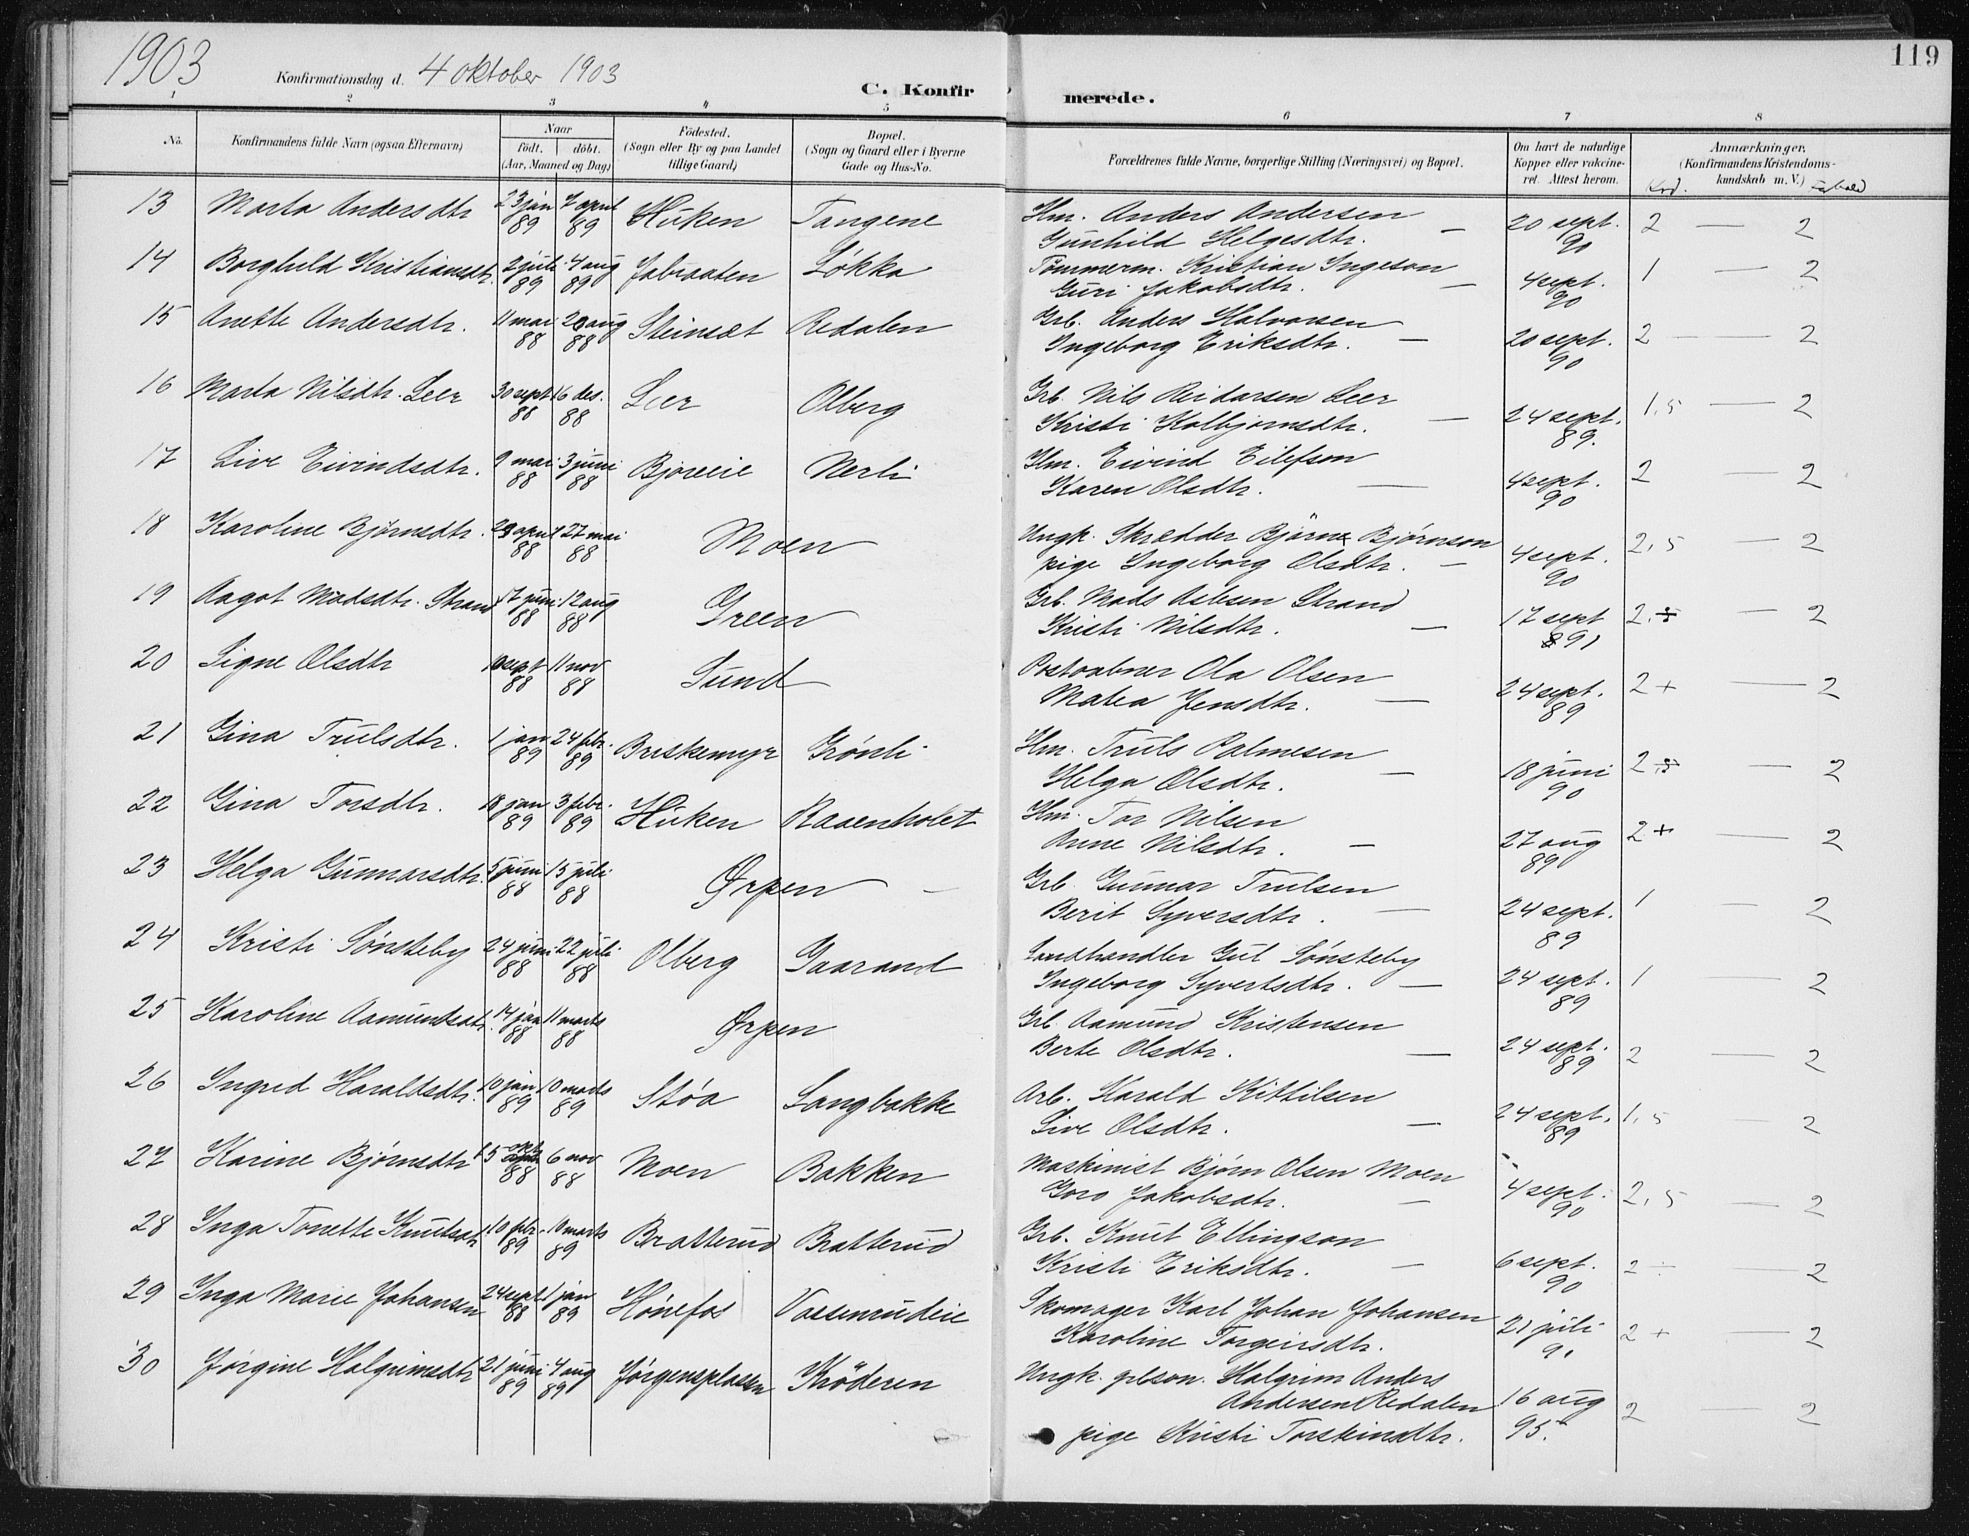 1903
Konfirmationsdag d. 4 oktober 1903
C. Konfir
merede.
119
1 2 3 4 5 6 7 8
No.
Konfirmandens fulde Navn (ogsaa Efternavn)
Naar
født. døbt.
(Aar, Maaned og Dag)
Fødested.
(Sogn eller By og paa Landet
tillige Gaard)
Bopæl.
(Sogn og Gaard eller i Byerne
Gade og Hus-No.
Forældrenes fulde Navne, borgerlige Stilling (Næringsvei) og Bopæl.
Om havt de naturlige
Kopper eller vakcine-
ret. Attest herom.
Anmærkninger,
(Konfirmandens Kristendoms-
kundskab m. V.)
13 Marta Andersdtr 23 jan 89 7 april 89 Huken Tangene
Hm. Anders Andersen
Gunhild Helgesdtr. — 20 sept. 90 2 — 2
14 Borghild Kristiansdtr. 2 juli 89 4 aug 89 Løkka
Tømmerm. Kristian Ingeson
Guri Jakobsdtr. — 4 sept. 90 1 — 2
15 Anette Andersdtr. 11 mai 88 20 aug 88 Steinsæt Redalen
Grb. Anders Halvorsen
Ingeborg Eriksdtr. — 20 sept. 90 2 — 2
16 Marta Nilsdtr. Leer 30 sept 88 16 des. 88 Leer Olberg
Grb. Nils Reidarsen Leer
Kristi Kolbjørnsdtr. — 24 sept. 89. 1,5 — 2
17 Live Eivindsdtr. 9 mai 88 3 juni 88 Bjøreeie Nerli
Hm. Eivind Eilefson
Karen Olsdtr. — 4 sept. 90 2 — 2
18 Karoline Bjørnsdtr. 29 april 88 27 mai 88 Moen
Ungk. Skrædder Bjørn Bjørnson
pige Ingeborg Olsdtr. — 4 sept. 90 2,5 — 2
19 Aagot Madsdtr. Strand 17 juni 88 12 aug 88 Green
Grb. Mads Asles­en Strand
Kristi Nilsdtr. — 17 sept 91 2 — 2
20 Signe Olsdtr 10 sept 88 11 nov 88 Sund
Postaabner Ola Olsen
Matea Jensdtr. — 24 sept. 89 2 + — 2
21 Gina Trulsdtr. 1 jan 89 24 febr. 89 Briskemyr Grønli
Hm. Truls Palmesen
Helga Olsdtr. — 18 juni 90 2 — 2
22 Gina Torsdtr. 18 jan 89 3 febr. 89 Huken Raaenholet
Hm. Tor Nilsen
Anne Nilsdtr. — 27 aug 89 2 + — 2
23 Helga Gunnarsdtr. 5 juni 88 15 juli 88 Ørpen —
Grb. Gunnar Trulsen
Berit Syversdtr. — 24 sept. 89 1 — 2
24 Kristi Sønsteby 24 juni 88 22 juli 88 Olberg Gaarand
Landhandler Gul Sønsteby
Ingeborg Syvertsdtr. — 24 sept. 89 1 2
25 Karoline Aamundsdtr. 14 jan 88 11 marts 88 Ørpen
Grb. Aamund Kristensen
Berte Olsdtr. — 24 sept. 89 2 2
26 Ingrid Haraldsdtr. 10 jan 89 10 marts 89 Støa Langbakke
Arb. Harald Kittilsen
Live Olsdtr. — 24 sept. 89 1,5 2
27 Karine Bjørnsdtr 15 okt 88 6 nov 88 Moen Bakken
Maskinist Bjørn Olsen Moen
Goro Jakobsdtr. — 4 sept. 90 2,5 — 2
28 Inga Tonette Knutsdtr 10 febr. 89 10 marts 89 Bratterud Bratterud
Grb. Knut Ellingson
Kristi Eriksdtr. — 6 sept. 90 2 ÷ — 2
29 Inga Marie Johansen 24 sept. 88 1 jan 89 Hønefos Vassenrudeie
Skomager Karl Johan Johansen
Karoline Torgeirsdtr. 21 juli 91 2 + — 2
30 Jørgine Halgrimsdtr 21 juni 89 4 aug 89 Jørgensplassen Krøderen
Ungk. grbson. Halgrim Anders
Andersen Redalen 16 aug 95. 2 — 2
pige Kristi Torsteinsdtr.